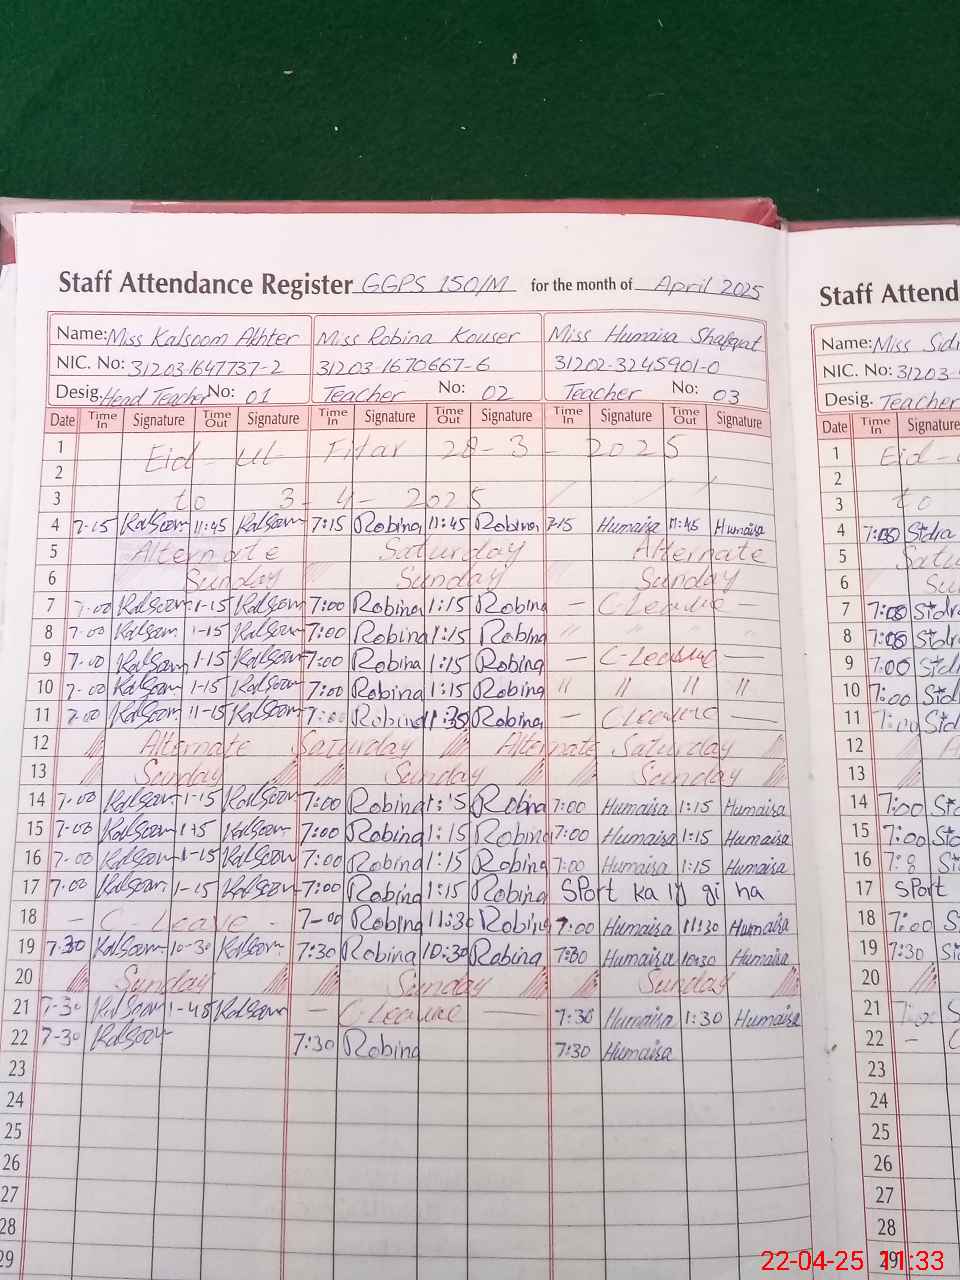 Staff Attendance Register GGPS 150/M for the month of April 2025
Name: Miss Kalsoom Akhter Miss Robina Kouser Miss Humaisa Shafqat
NIC. No: 31203 1647737-2 31203 1670667-6 31202-3245901-0
Desig. Head Teacher No: 01 Teacher No: 02 Teacher No: 03
Date Time In Signature Time Out Signature Time In Signature Time Out Signature Time In Signature Time Out Signature
1 Eid-ul-Fitar 28-3-2025
2
3 to 3-4-2025
4 7-15 Kalsoom 11:45 Kalsoom 7:15 Robina 11:45 Robina 7:15 Humaisa 11:45 Humaisa
5 Alternate Saturday Alternate
6 Sunday Sunday Sunday
7 7-00 Kalsoom 1-15 Kalsoom 7:00 Robina 1:15 Robina — C-Leave —
8 7-00 Kalsoom 1-15 Kalsoom 7:00 Robina 1:15 Robina " " " "
9 7-00 Kalsoom 1-15 Kalsoom 7:00 Robina 1:15 Robina — C-Leave —
10 7-00 Kalsoom 1-15 Kalsoom 7:00 Robina 1:15 Robina " " " "
11 7-00 Kalsoom 11-15 Kalsoom 7:00 Robina Robina — C Leave —
12 Alternate Saturday Alternate Saturday
13 Sunday Sunday Sunday
14 7-00 Kalsoom 1-15 Kalsoom 7:00 Robina 1:15 Robina 7:00 Humaisa 1:15 Humaisa
15 7-00 Kalsoom 1-15 Kalsoom 7:00 Robina 1:15 Robina 7:00 Humaisa 1:15 Humaisa
16 7-00 Kalsoom 1-15 Kalsoom 7:00 Robina 1:15 Robina 7:00 Humaisa 1:15 Humaisa
17 7-00 Kalsoom 1-15 Kalsoom 7:00 Robina 1:15 Robina SPort ka ly gi ha
18 — C-Leave - 7-00 Robina 11:30 Robina 7:00 Humaisa 11:30 Humaisa
19 7-30 Kalsoom 10-30 Kalsoom 7:30 Robina 10:30 Robina 7:30 Humaisa 10:30 Humaisa
20 Sunday Sunday Sunday
21 7-30 Kalsoom 1-45 Kalsoom — C-Leave — 7:30 Humaisa 1:30 Humaisa
22 7-30 Kalsoom 7:30 Robina 7:30 Humaisa
23
24
25
26
27
28
29
Staff Attend
Name: Miss Sid
NIC. No: 31203
Desig. Teacher
Date Time In Signature
1 Eid-
2
3 to
4 Sidra
5 Satu
6 Su
7 Sidr
8 Sidr
9 7:00 Sidr
10 7:00 Sid
11 7:00 Sid
12 A
13
14 7:00 Sid
15 7:00 Sid
16 Si
17 SPort
18 7:00 S
19 7:30 Si
20
21 S
22 – C
23
24
25
26
27
28
29
22-04-25 11:33